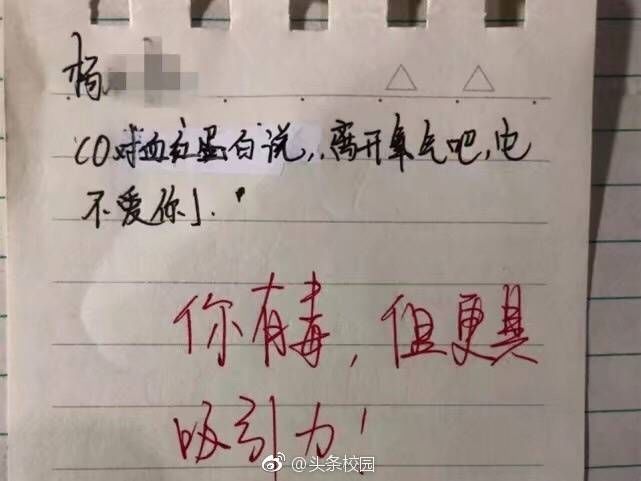 杨
CO对血红蛋白说,离开氧气吧,它
不爱你」.
你有毒,但更具
吸引力!
@头条校园